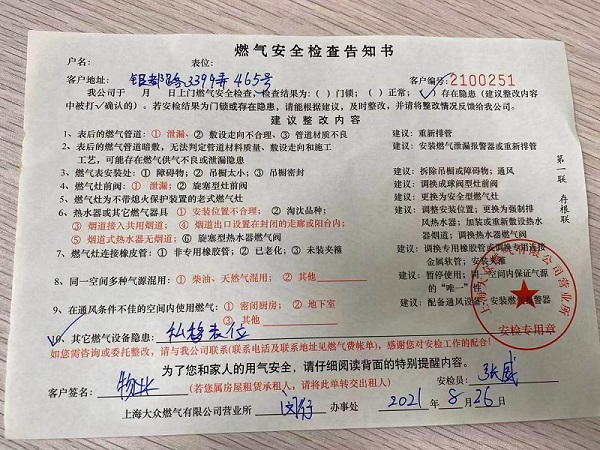 燃气安全检查告知书
户名: 表位:
客户地址: 银都路3399弄465号 客户编号:2100251
我公司于 月 日上门燃气安全检查、检查结果为:( )门锁;( )正常;(✓)存在隐患(建议整改内容
中被打✓确认的)。若安检结果为门锁或存在隐患,请能根据建议,及时整改,并请将整改情况反馈给我公司。
建议整改内容
1、表后的燃气管道:① 泄漏、② 敷设走向不合理、③ 管道材质不良 建议:重新排管
2、表后的燃气管道暗敷,无法判定管道材料质量、敷设走向和施工 建议:安装燃气泄漏报警器或重新排管
工艺,可能存在燃气供气不良或泄漏隐患
3、燃气表安装处:① 障碍物;② 吊橱太小;③ 吊橱密封 建议:拆除吊橱或障碍物;通风
4、燃气灶前阀:① 泄漏;② 旋塞型灶前阀 建议:调换成球阀型灶前阀
5、燃气灶为不带熄火保护装置的老式燃气灶 建议:更换为安全型燃气灶
6、热水器或其它燃气器具 ① 安装位置不合理;② 淘汰品种; 建议:调整安装位置;更换为强制排
③ 烟道接入共用烟道;④ 烟道出口设置在封闭的走廊或阳台内; 风热水器;加装或重新敷设热水
⑤ 烟道式热水器无烟道;⑥ 旋塞型热水器燃气阀 器烟道;调换热水器前阀
7、燃气灶连接橡皮管:① 非专用橡胶管;② 已老化;③ 未装夹箍 建议:调换专用橡胶管或调换专用连接
金属软管;安装夹箍
8、同一空间多种气源混用:① 柴油、天然气混用;② 其他 建议:暂停使用;同一空间内保证气源
的“唯一”性
9、在通风条件不佳的空间内使用燃气:① 密闭厨房;② 地下室 建议:配备通风设备;安装燃气报警器
③ 其他
✓10、其它燃气设备隐患: 私移表位
如您需咨询或委托整改,请与我公司联系(联系电话及联系地址见燃气费帐单),感谢您对安检工作的配合!
为了您和家人的用气安全,请仔细阅读背面的特别提醒内容。
客户签名: 物业 (若您属房屋租赁承租人,请将此单转交出租人) 安检员: 张威
上海大众燃气有限公司营业所 闵行 办事处 2021年8月26日
第一联 存根联
上海大众燃气有限公司营业所
安检专用章